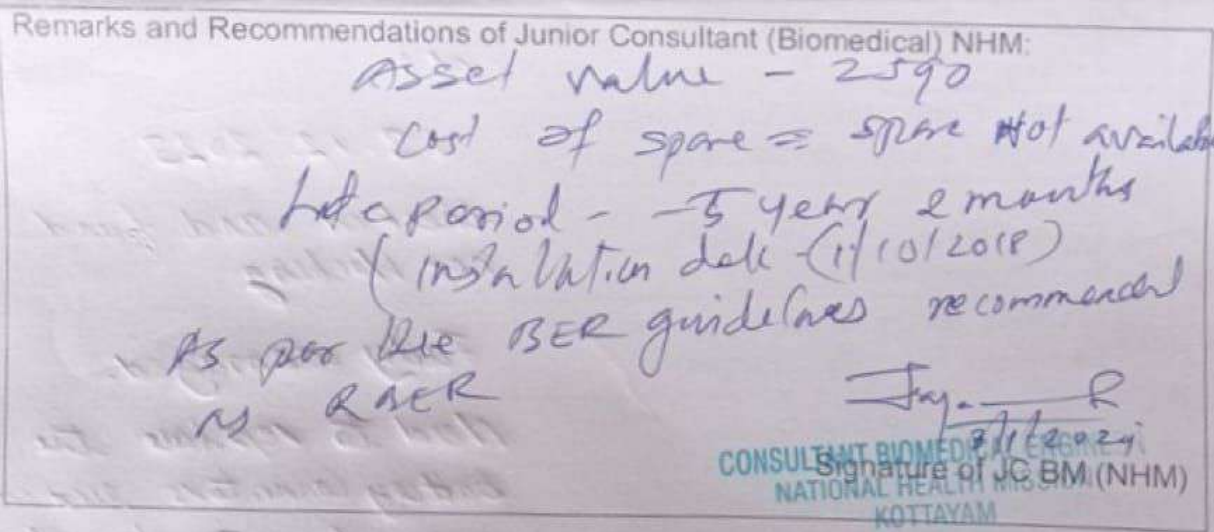 Remarks and Recommendations of Junior Consultant (Biomedical) NHM:
Asset value - 2590
Cost of spare = spare Not available
period - -5 year 2 months
(Installation date -(1/10/2018)
As per the BER guidelines recommended
as RBER
3/1/2024
CONSULTANT BIOMEDICAL ENGINEER
Signature of JC BM (NHM)
NATIONAL HEALTH MISSION
KOTTAYAM